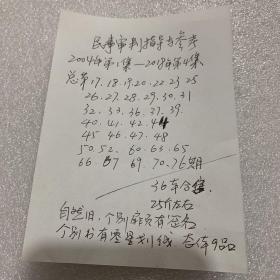 民事审判指导与参考
2004年第1集—2018年第4集
总第17.18.19.20.22.23 25
26.27.28.29.30.31
32.33.36.37.39.
40.41.42.44
45 46.47.48
50.52. 60.63.65
66.67 69.70.76期
36本合售
25斤左右
自然旧,个别扉页有签名
个别书有零星划线 整体9品